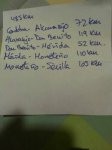 485 km
Cordoba - Alcaracejo 72 km
Alcaracejo - Don Benito 119 km
Don Benito - Mérida 52 km.
Mérida - Monesterio 110 km
Monesterio - Sevilla 103 km